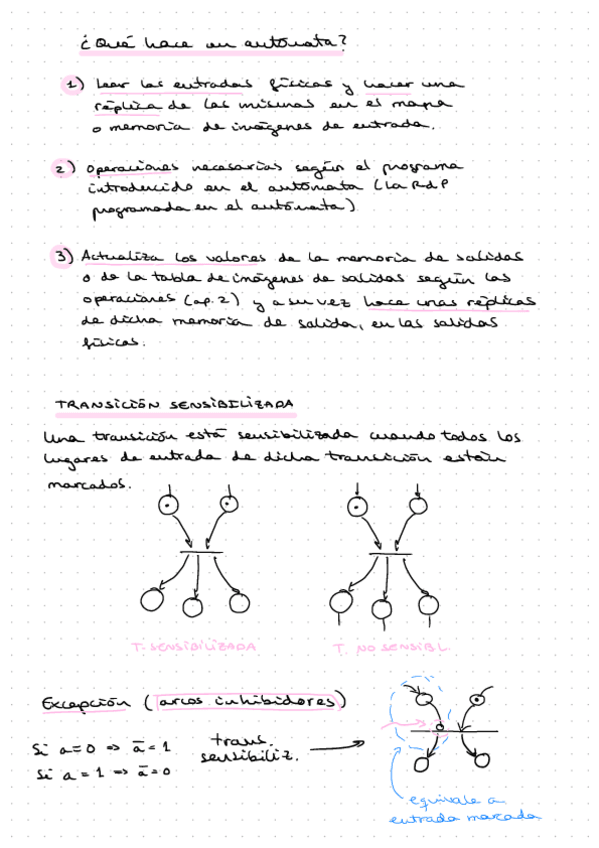 ¿Qué hace un autómata?
1) Leer las entradas físicas y hacer una
réplica de las mismas en el mapa
o memoria de imágenes de entrada.
2) Operaciones necesarias según el programa
introducido en el autómata (la RdP
programada en el autómata)
3) Actualiza los valores de la memoria de salidas
o de la tabla de imágenes de salidas según las
operaciones (ap. 2) y a su vez hace unas réplicas
de dicha memoria de salida, en las salidas
físicas.
TRANSICIÓN SENSIBILIZADA
Una transición está sensibilizada cuando todos los
lugares de entrada de dicha transición están
marcados.
T. SENSIBILIZADA
T. NO SENSIBL.
Excepción (arcos inhibidores)
Si a=0 => a̅=1
Si a=1 => a̅=0
trans.
sensibiliz.
equivale a
entrada marcada